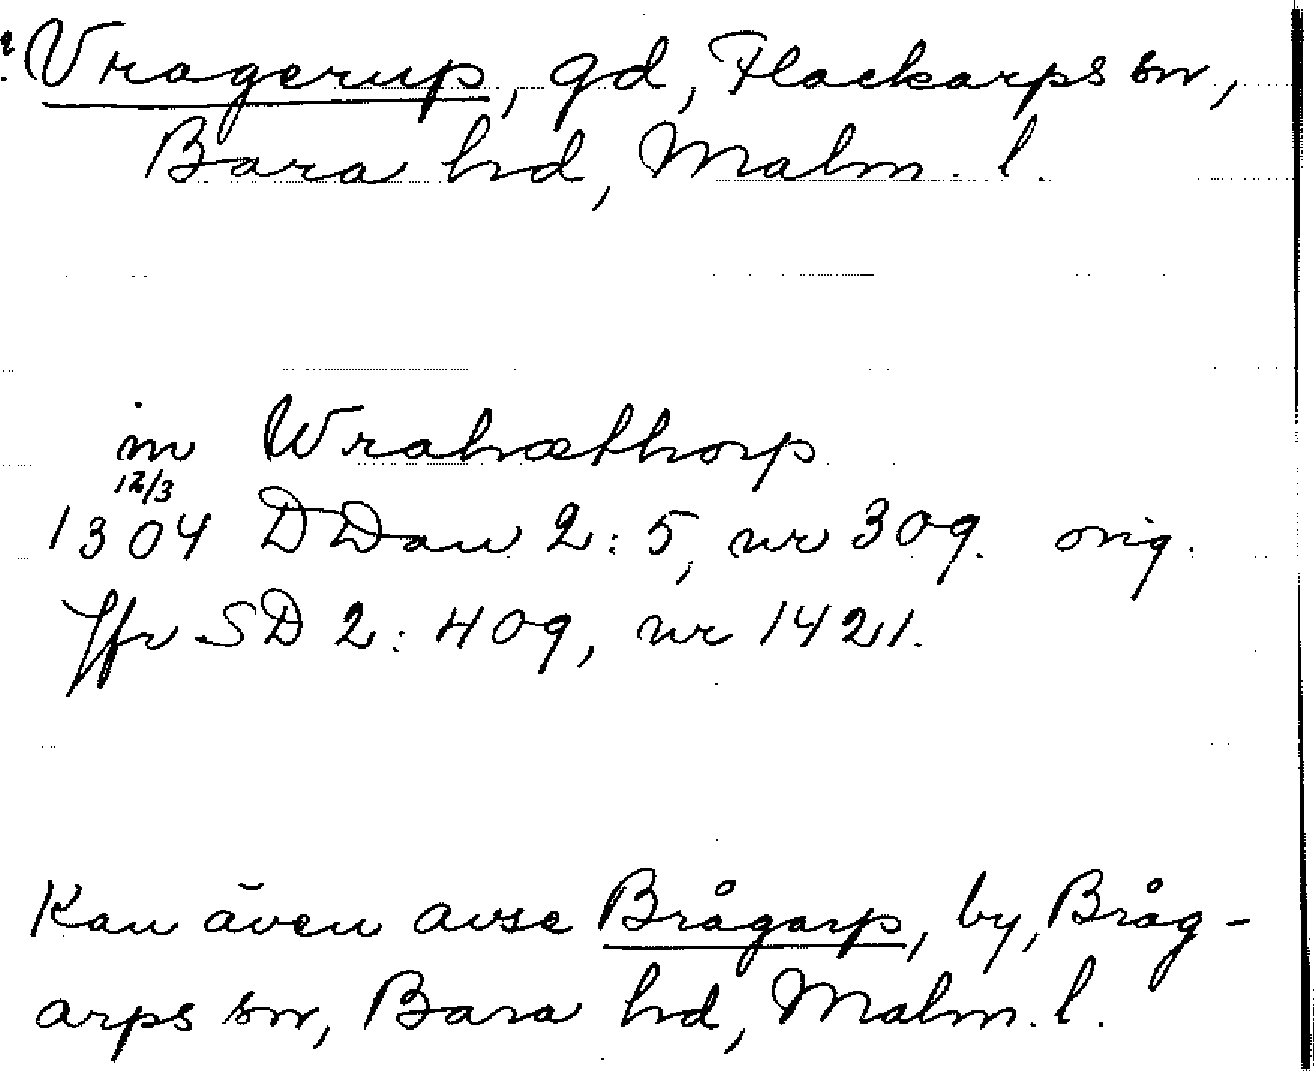 ? Vragerup, gd, Flackarps sn,
Bara hd, Malm. l.
in Wrahæthorp
12/3
1304 DDan 2:5, nr 309. orig.
Jfr SD 2:409, nr 1421.
Kan även avse Brågarp, by, Bråg-
arps sn, Bara hd, Malm. l.